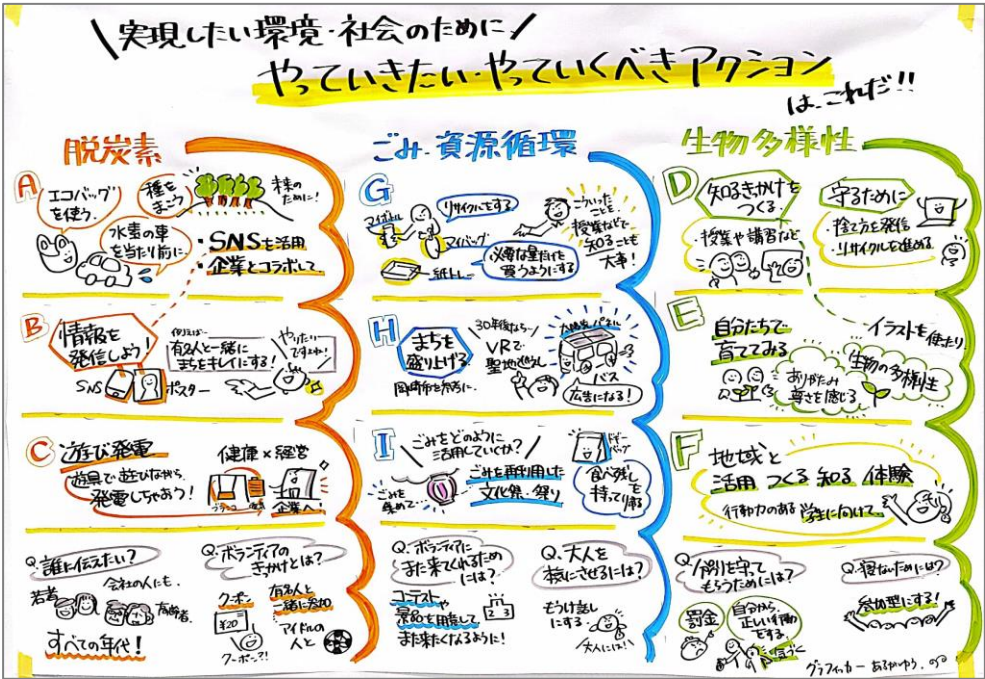 実現したい環境・社会のために
やっていきたい・やっていくべきアクション
は、これだ!!
脱炭素
A
エコバッグ
を使う.
種を
まこう
未来の
ために!
水素の車
を当たり前に.
・SNSを活用
・企業とコラボして
B
情報を
発信しよう!
SNS
ポスター
例えば…
有名人と一緒に
まちをキレイにする!
やりたい
ですよね!
C
遊び発電
遊具で遊びながら
発電しちゃおう!
健康×経営
ブランコ
企業へ!
Q.誰に伝えたい?
若者
会社の人にも.
高齢者.
すべての年代!
Q.ボランティアの
きっかけとは?
クーポン
¥20
クーポン?!
有名人と
一緒に参加
アイドルの
人と
ごみ・資源循環
G
マイボトル
リサイクルをする
マイバッグ
紙トレー
必要な量だけを
買うようにする
こういった
ことを
授業などで
知ることも
大事!
H
まちを
盛り上げる
岡崎市を参考に.
30年後なら…
VRで
聖地巡礼
太陽光パネル
バス
広告になる!
I
ごみをどのように
活用していくか?
ごみを
集めて…
ごみを再利用した
文化祭・祭り
ドギー
バッグ
食べ残しを
持って帰る
Q.ボランティアに
また来てくれるため
には?
コンテストや
景品を用意して
また来たくなるように!
1 2 3
Q.大人を
本気にさせるには?
もうけ話し
にする.
大人には!
生物多様性
D
知るきっかけを
つくる.
・授業や講習など
守るために
・捨て方を発信
・リサイクルを進める
E
自分たちで
育ててみる
イラストを使ったり
ありがたみ
尊さを感じる
生物の多様性
F
地域と
活用 つくる 知る 体験
行動力のある学生に向けて.
Q.ルールを守って
もらうためには?
罰金
自分から
正しい行動
をする.
気づく
Q.寝ないためには?
参加型にする!
グラフィッカー あるがゆう.